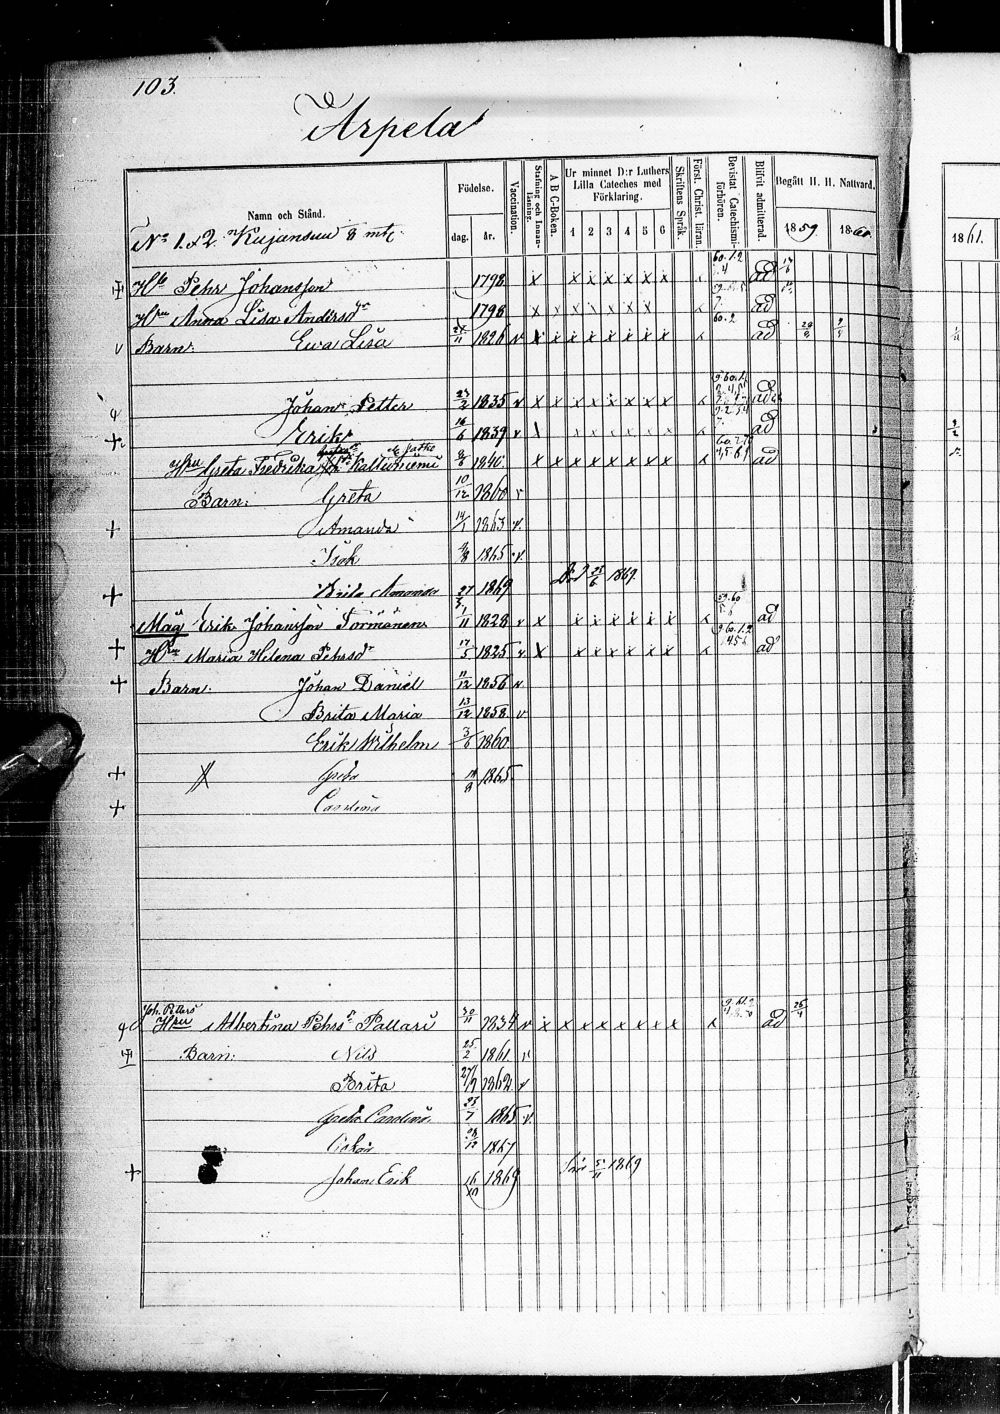 103.
Arpela
Namn och Stånd.
Födelse.
dag. år.
Vaccination.
Stafning och Innanläsning.
A B C-Boken.
Ur minnet D:r Luthers Lilla Cateches med Förklaring.
1 2 3 4 5 6
Skriftens Språk.
Först. Christ. läran.
Bevistat Catechismiförhören.
Blifvit admitterad.
Begått H. H. Nattvard.
1859. 1860. 1861.
No 1 & 2 Kujansuu 8 mtl.
Hde Pehr Johansson 1798 x x x x x x x x ad
Hru Anna Lisa Andersdr 1798 x x x x x x x x x ad
Barn: Ewa Lisa 1826 v x x x x x x x x x ad
Johan Petter 23/2 1835 v x x x x x x x x x ad
Erik 16/6 1839 v x x x x x x x x x ad
Hru Greta Fredrika Kallioniemi 1840 x x x x x x x x x ad
Barn: Greta 10/12 1860 v
Amanda 14/1 1863 v.
Isak 9/8 1865 v.
Brita Amanda 27/5 1869 Död 25/6 1869
Måg Erik Johansson Tormänen 1/11 1828 v x x x x x x x x ad
Hru Maria Helena Pehrsdr 17/5 1825 v x x x x x x x x ad
Barn: Johan Daniel 11/12 1856 v.
Brita Maria 13/12 1858 v
Erik Wilhelm 3/6 1860
Greta 1865
Carolina
Joh. Petters
Hru Albertina Pehrsdr Pallari 30/11 1834 v x x x x x x x x x ad 25/4
Barn: Nils 25/2 1861. v
Brita 1862 v
Greta Carolina 23/7 1865 v.
Oskar 1867
Johan Erik 1869 5/11 1869